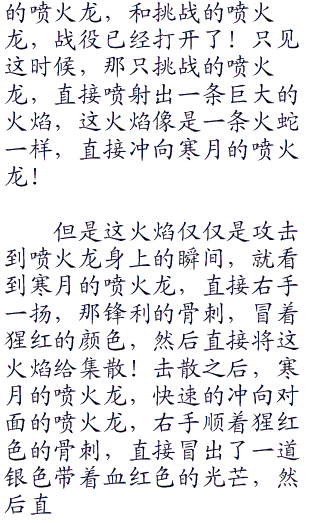 的喷火龙，和挑战的喷火
龙，战役已经打开了！只见
这时候，那只挑战的喷火
龙，直接喷射出一条巨大的
火焰，这火焰像是一条火蛇
一样，直接冲向寒月的喷火
龙！
但是这火焰仅仅是攻击
到喷火龙身上的瞬间，就看
到寒月的喷火龙，直接右手
一扬，那锋利的骨刺，冒着
猩红的颜色，然后直接将这
火焰给集散！击散之后，寒
月的喷火龙，快速的冲向对
面的喷火龙，右手顺着猩红
色的骨刺，直接冒出了一道
银色带着血红色的光芒，然
后直